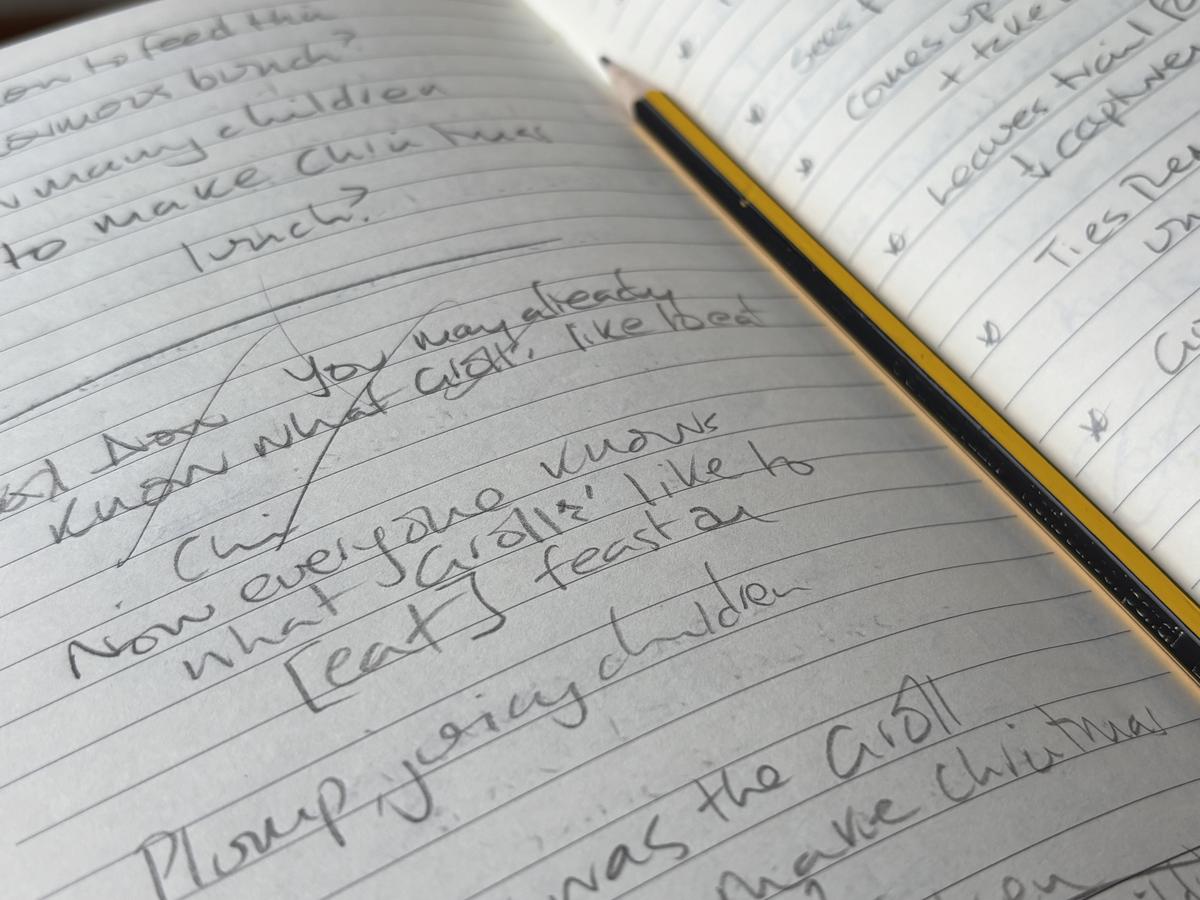 to feed the
bunch?
many children
to make Christmas
lunch?
Now You may already
know what Gröll's like to eat
Chi
Now everyone knows
what Grölls' like to
[eat] feast on
Plump, juicy children
was the Gröll
make Christmas
sees
comes up
+ take
Leaves trail
↓ capture
Ties